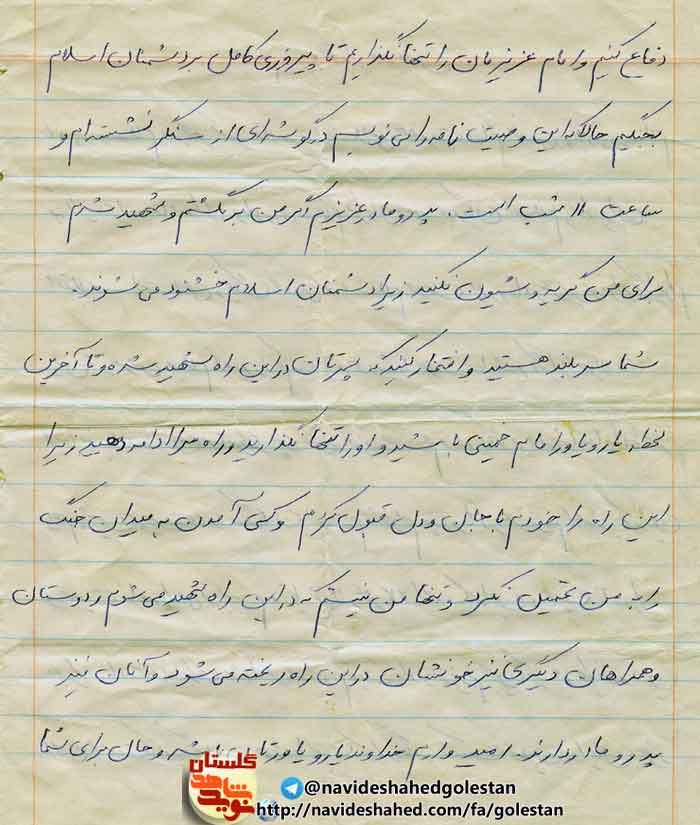 دفاع کنیم و امام عزیزمان را تنها نگذاریم تا پیروزی کامل بر دشمنان اسلام
بجنگیم حال که این وصیت نامه را می نویسم در گوشه ای از سنگر نشسته ام و
ساعت ۱۱ شب است. پدر و مادر عزیزم اگر من برنگشتم و شهید شدم
برای من گریه و شیون نکنید زیرا دشمنان اسلام خشنود می شوند.
شما سربلند هستید و افتخار کنید که پسرتان در این راه شهید شده و تا آخرین
لحظه یار و یاور امام خمینی باشید و او را تنها نگذارید و راه مرا ادامه دهید زیرا
این راه را خودم با جان و دل قبول کردم و کسی آمدن به میدان جنگ
را به من تحمیل نکرد و تنها من نیستم که در این راه شهید می شوم و دوستان
و همراهان دیگری نیز خونشان در این راه ریخته می شود و آنان نیز
پدر و مادر دارند. امیدوارم خداوند یار و یاورتان باشد و حال برای شما
گلستان
نوید شاهد
@navideshahedgolestan
http://navideshahed.com/fa/golestan